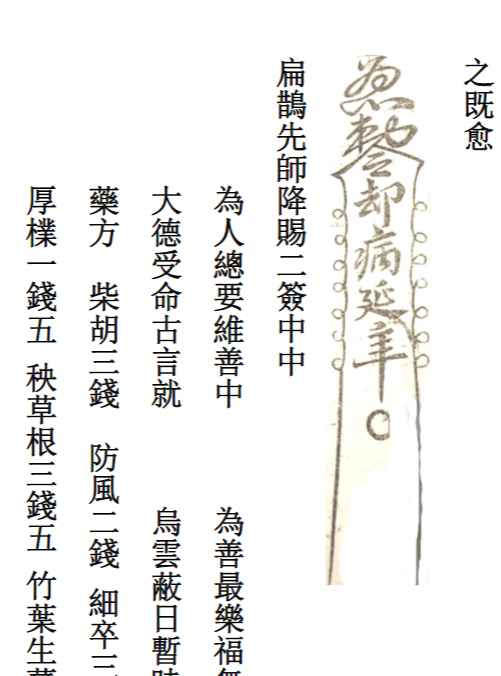 之既愈
勅令却病延年
扁鵲先師降賜二簽中中
為人總要維善中　為善最樂福無
大德受命古言就　烏雲蔽日暫時
藥方　柴胡三錢　防風二錢　細卒三
厚樸一錢五　秧草根三錢五　竹葉生